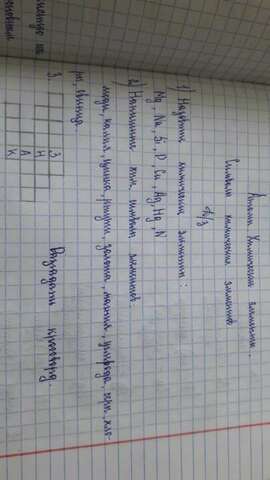 Атомы. Химические элементы.
Символы химических элементов
д/з
1) Назвать химические элементы:
Mg, Na, Si, P, Cu, Ag, Hg, N
2) Напишите хим. символы элементов:
меди, калия, кальция, ртути, золота, магния, углерода, серы, хло-
ра, свинца.
3. Разгадать кроссворд.
З
Н
А
К